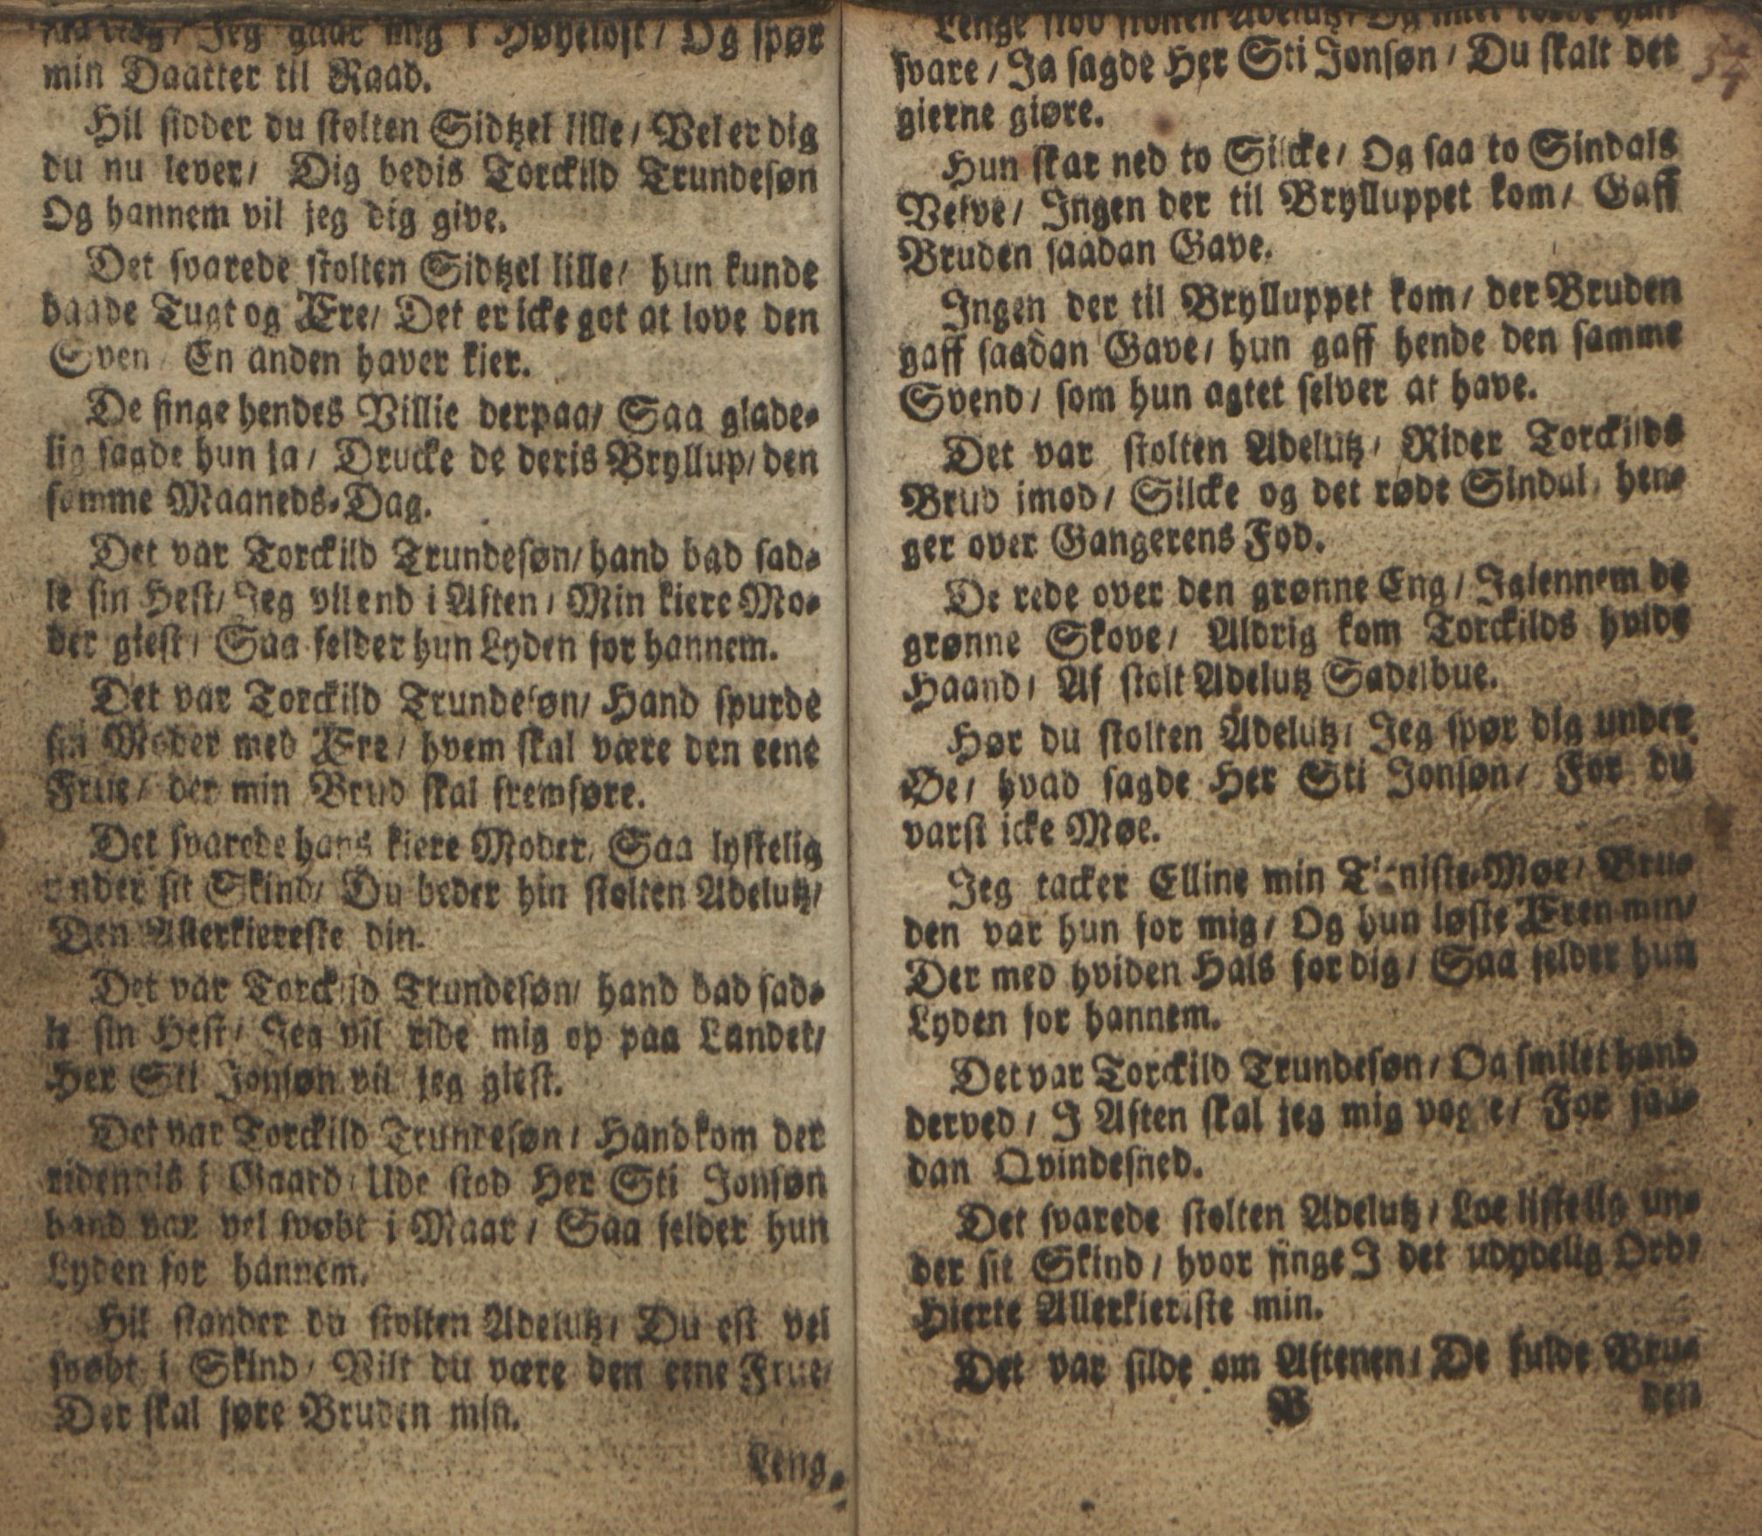 Jeg gaar mig i Høyeloft / Og spør
min Daatter til Raad.
Hil sidder du stolten Sidtzel lille / Vel er dig
du nu lever / Dig bedis Torckild Trundesøn
Og hannem vil jeg dig give.
Det svarede stolten Sidtzel lille / hun kunde
baade Tugt og Ære / Det er icke got at love den
Sven / En anden haver kier.
De finge hendes Villie derpaa / Saa glade-
lig sagde hun ja / Drucke de deris Bryllup / den
somme Maaneds-Dag.
Det var Torckild Trundesøn / hand bad sad-
le sin Hest / Jeg vil end i Aften / Min kiere Mo-
der giest / Saa felder hun Lyden for hannem.
Det var Torckild Trundesøn / Hand spurde
sin Moder med Ære / hvem skal være den eene
Frue / der min Brud skal fremføre.
Det svarede hans kiere Moder / Saa lystelig
under sit Skind / Du beder hin stolten Adelutz /
Den Allerkiereste din.
Det var Torckild Trundesøn / hand bad sad-
le sin Hest / Jeg vil ride mig op paa Landet /
Her Sti Jonsøn vil jeg giest.
Det var Torckild Trundesøn / Hand kom der
ridendis i Gaard / Ude stod Her Sti Jonsøn
hand var vel svøbt i Maar / Saa felder hun
Lyden for hannem.
Hil stander du stolten Adelutz / Du est vel
svøbt i Skind / Vilt du være den eene Frue /
Der skal føre Bruden min.
Leng-
Lenge stod stolten Adelutz / Og intet torde hun
svare / Ja sagde Her Sti Jonsøn / Du skalt det
gierne giøre.
Hun skar ned to Silcke / Og saa to Sindals
Vefve / Ingen der til Brylluppet kom / Gaff
Bruden saadan Gave.
Ingen der til Brylluppet kom / der Bruden
gaff saadan Gave / hun gaff hende den samme
Svend / som hun agtet selver at have.
Det var stolten Adelutz / Rider Torckilds
Brud imod / Silcke og det røde Sindal / hen-
ger over Gangerens Fod.
De rede over den grønne Eng / Igiennem de
grønne Skove / Aldrig kom Torckilds hvide
Haand / Af stolt Adelutz Sadelbue.
Hør du stolten Adelutz / Jeg spør dig under
Øe / hvad sagde Her Sti Jonsøn / For du
varst icke Møe.
Jeg tacker Elline min Tieniste-Møe / Bru-
den var hun for mig / Og hun løste Æren min /
Der med hviden Hals for dig / Saa felder hun
Lyden for hannem.
Det var Torckild Trundesøn / Og smilet hand
derved / I Aften skal jeg mig vogte / For saa-
dan Qvindesned.
Det svarede stolten Adelutz / Loe listelig un-
der sit Skind / hvor finge I det udydelig Ord /
Hierte Allerkieriste min.
Det var silde om Aftenen / De fulde Bru-
B
den